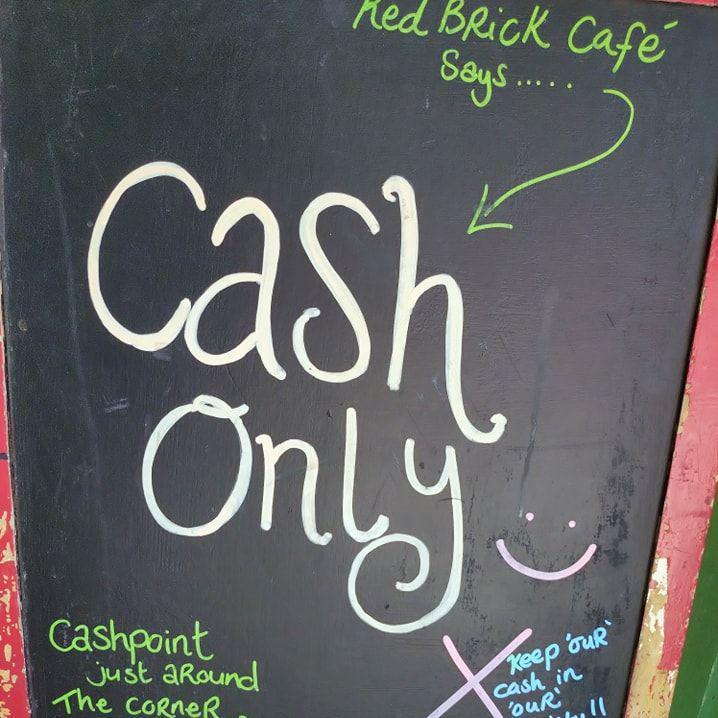 Red BRicK Café
Says.....
Cash
Only
Cashpoint
just aRound
The CoRNeR
Keep 'ouR'
cash in
'ouR'